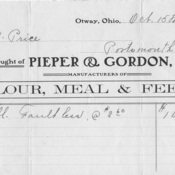 Otway, Ohio, Oct. 15
Price
Portsmouth
ought of PIEPER & GORDON,
MANUFACTURERS OF
LOUR, MEAL & FEE
bl. Faultless